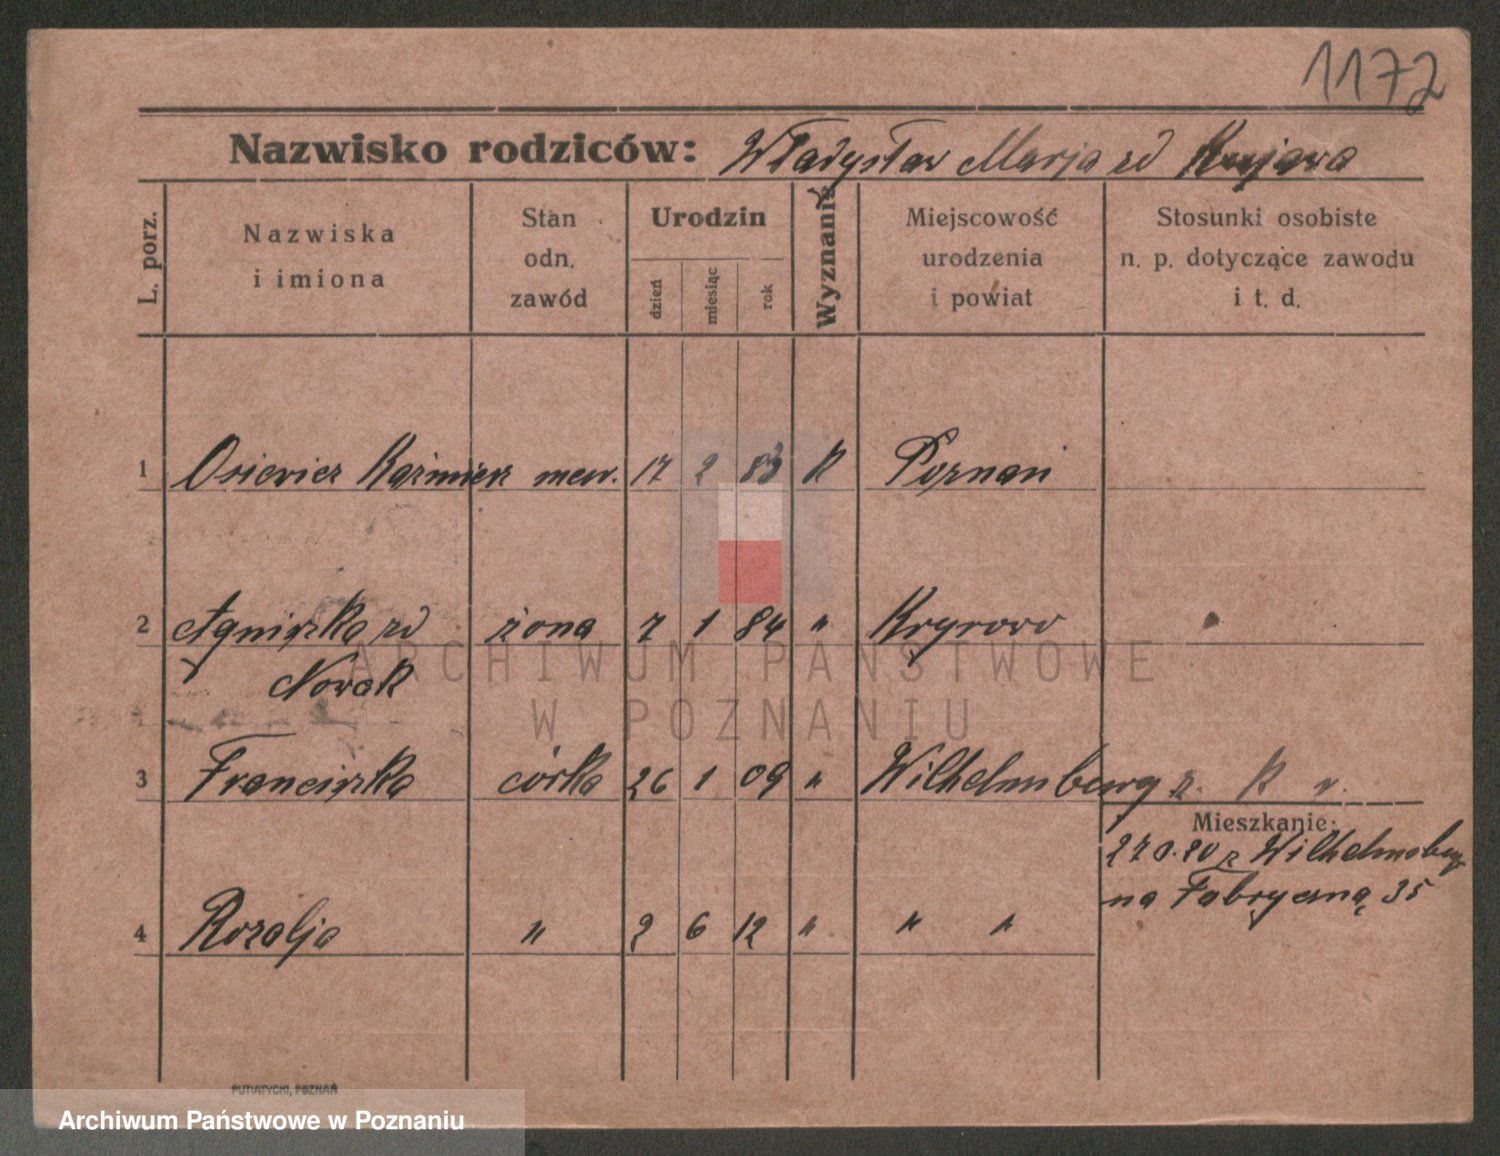 1172
Nazwisko rodziców: Władysław Marja zd
L. porz.
Nazwiska
i imiona
Stan
odn.
zawód
Urodzin
dzień
miesiąc
rok
Wyznanie
Miejscowość
urodzenia
i powiat
Stosunki osobiste
n. p. dotyczące zawodu
i t. d.
1 Osiewicz Kaźmierz mew. 17 2 83 K Poznań
2 Agniszka zd żona 7 1 84 "
Nowak
ARCHIWUM PAŃSTWOWE
W POZNANIU
3 Franciszka córka 26 1 09 " Wilhelmsberg z. K w.
Mieszkanie:
Wilhelmsberg
na Fabryczną 35
4 Rozalja " 2 6 12 " " "
PUTIATYCKI, POZNAŃ
Archiwum Państwowe w Poznaniu